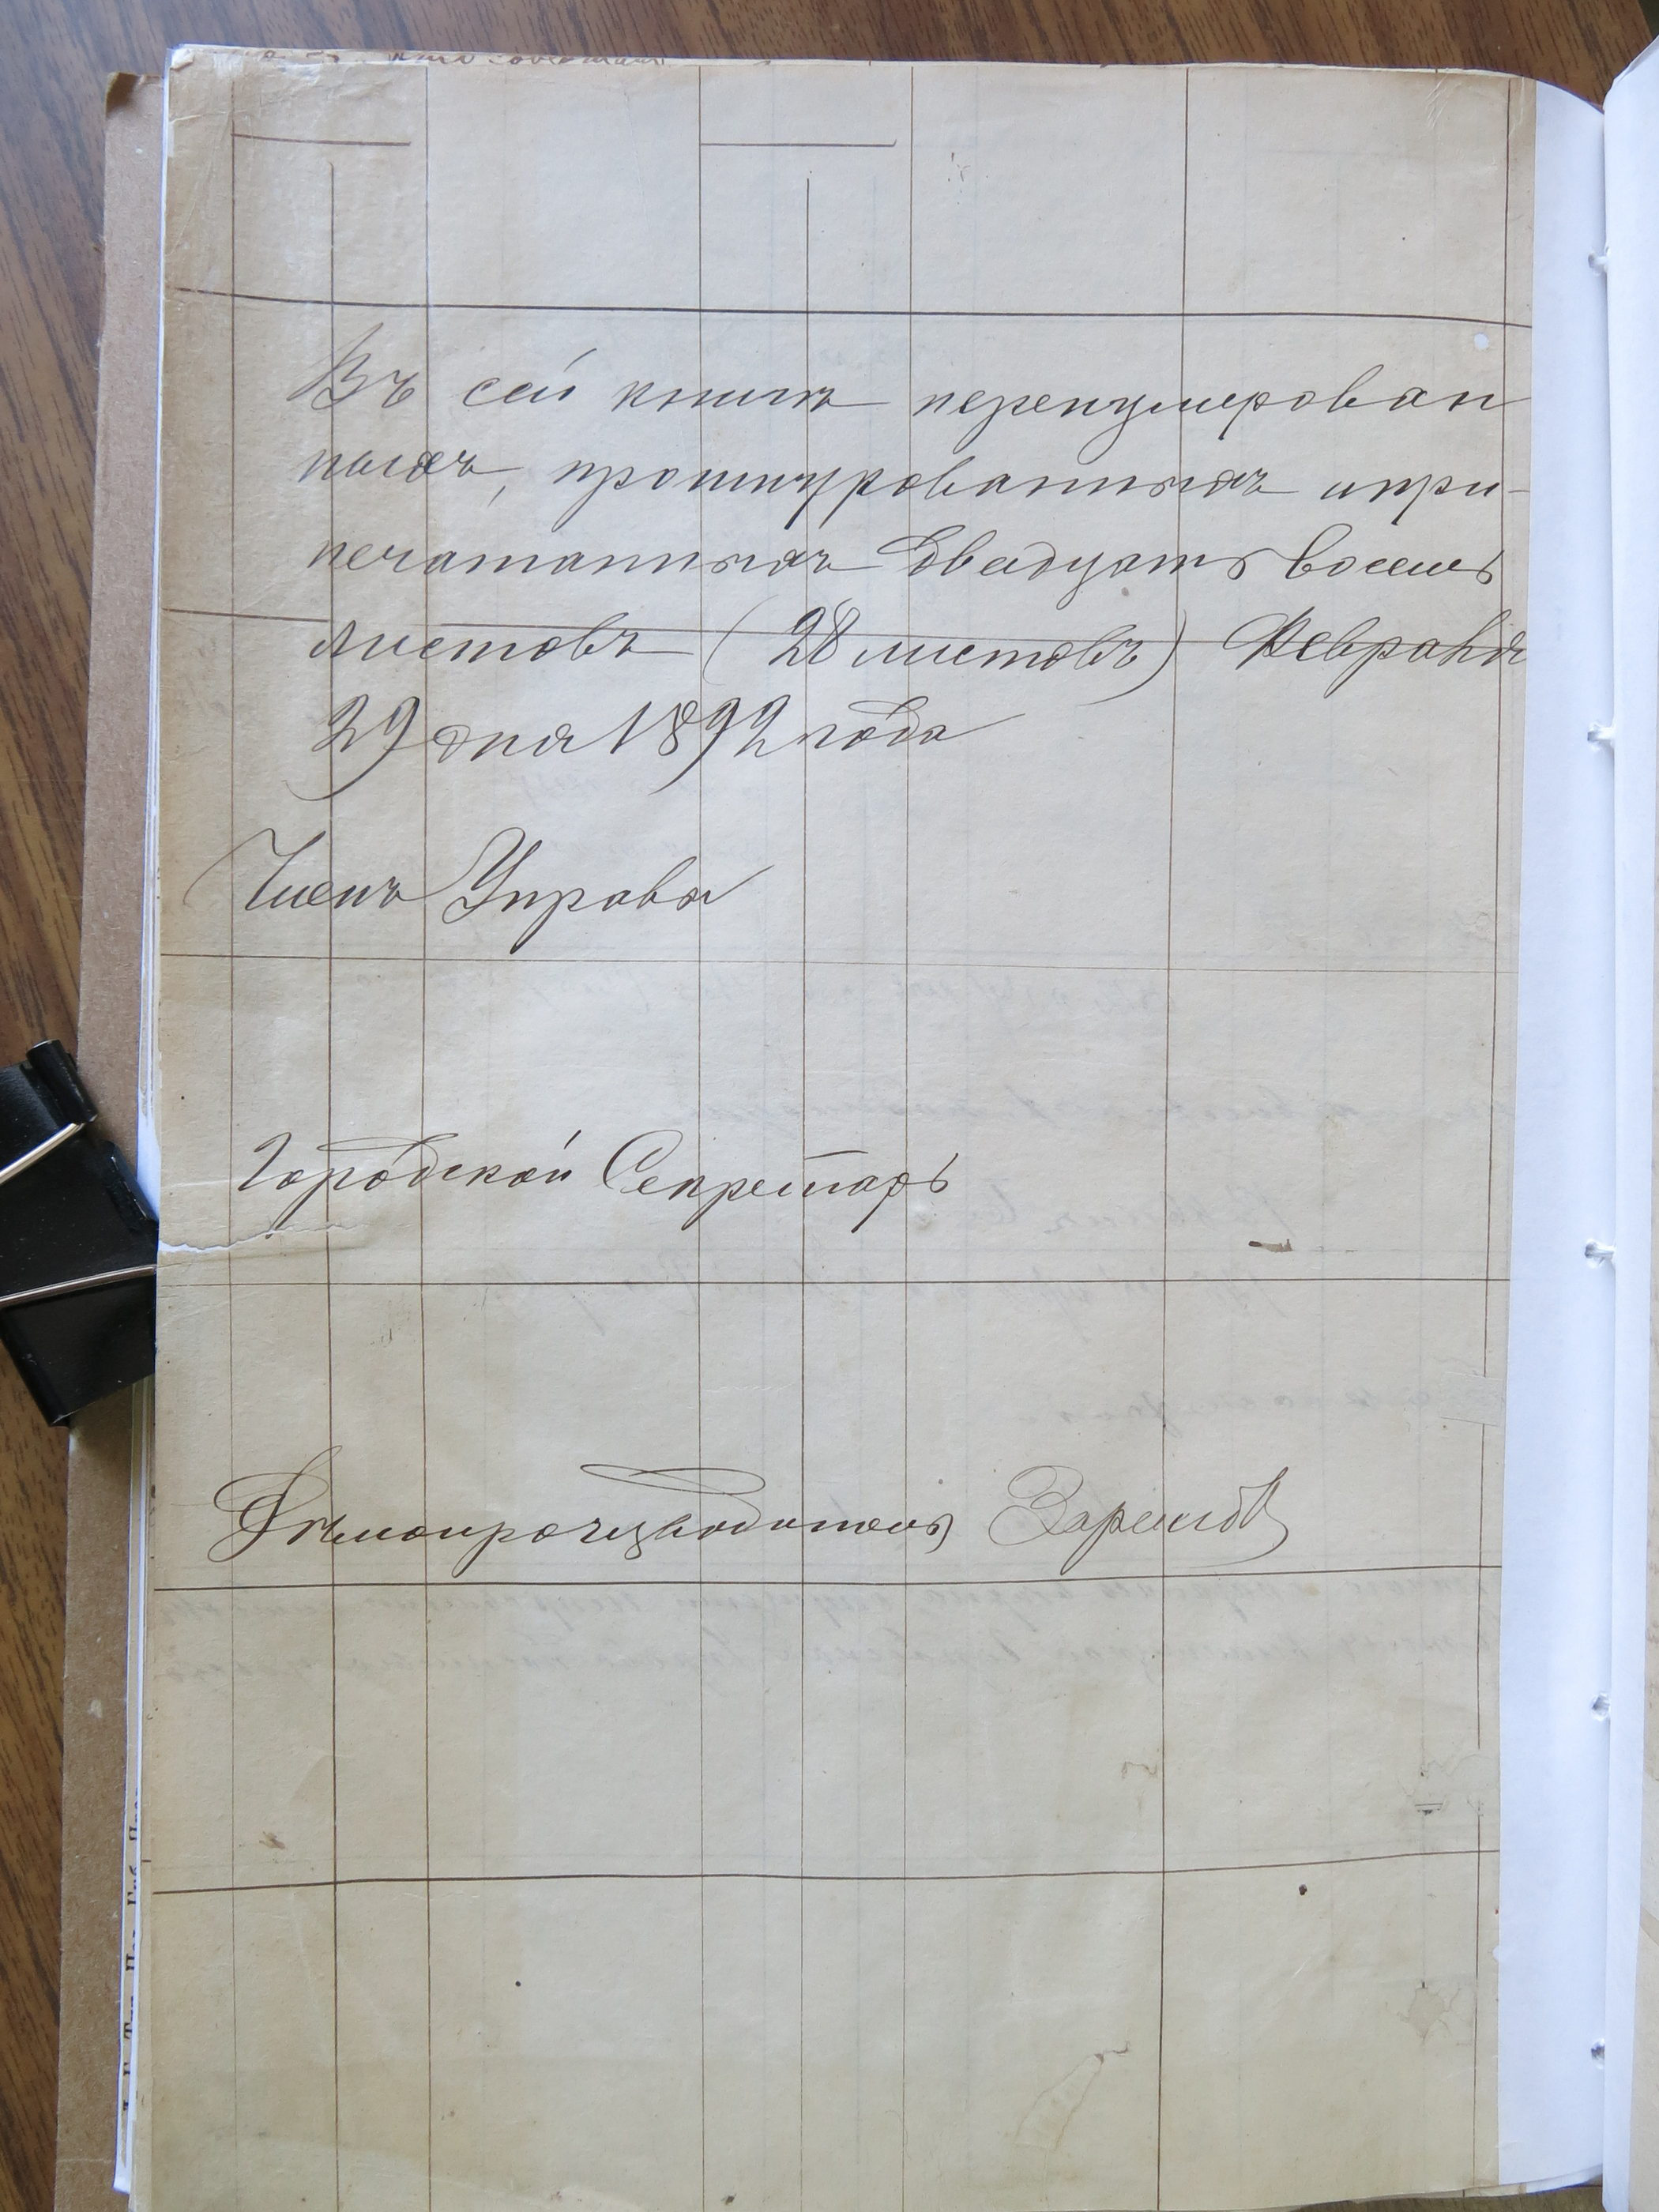 Въ сей книгѣ перенумерован
ныхъ, прошнурованныхъ и при-
печатанныхъ двадцать восемь
листовъ (28 листовъ) Февраля
29 дня 1892 года
Членъ Управы
Городской Секретарь
Дѣлопроизводитель